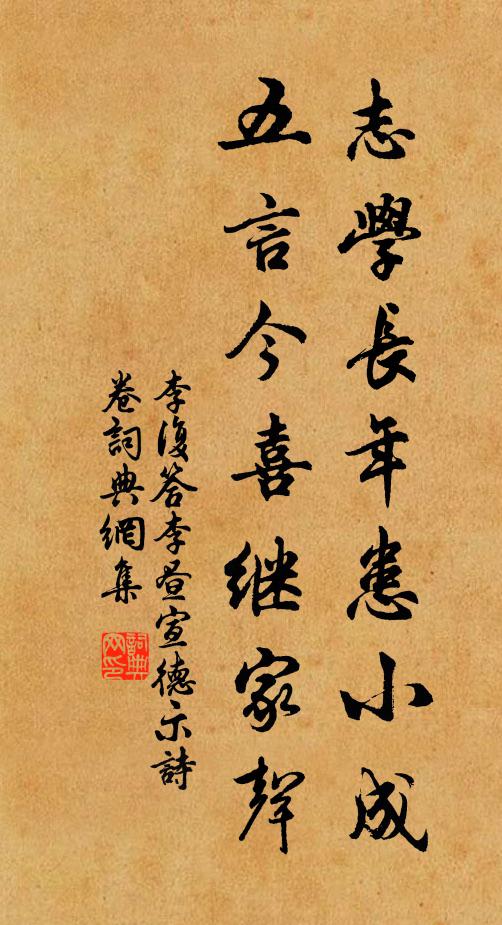 志學長年患小成
五言今喜继家聲
李復答李昼宣德示詩
卷詞典網集
詞典
网印